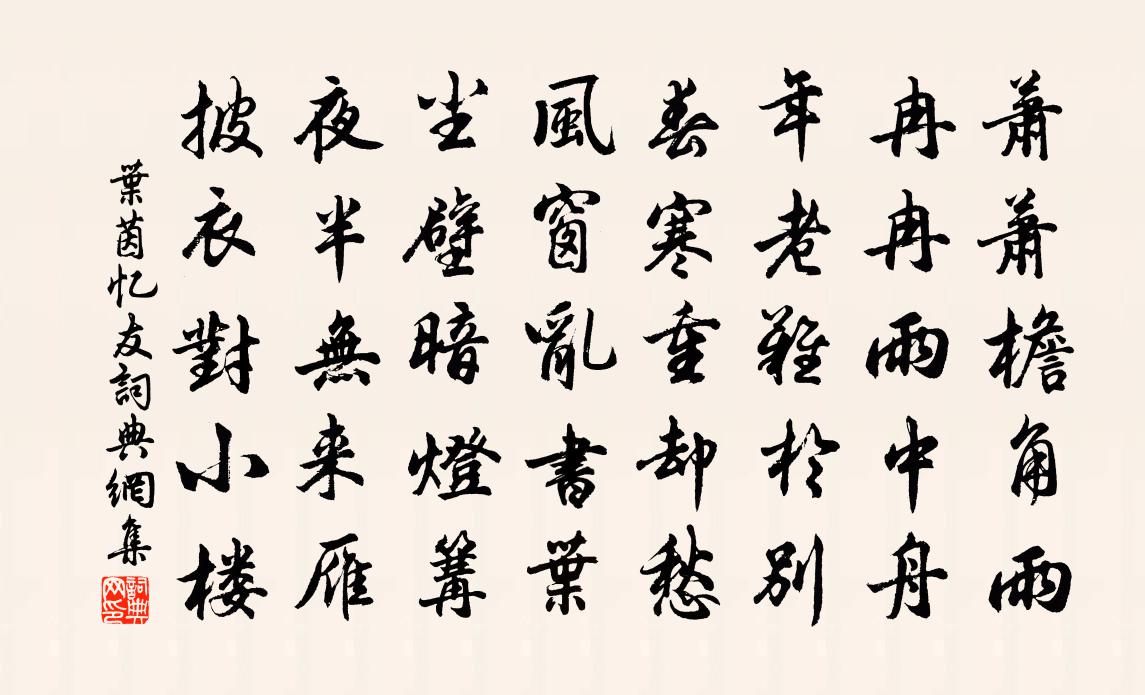 蕭蕭檐角雨
冉冉雨中舟
年老難於別
春寒重却愁
風窗亂書葉
坐壁暗燈篝
夜半無来雁
披衣對小楼
葉茵忆友詞典網集
詞典网印